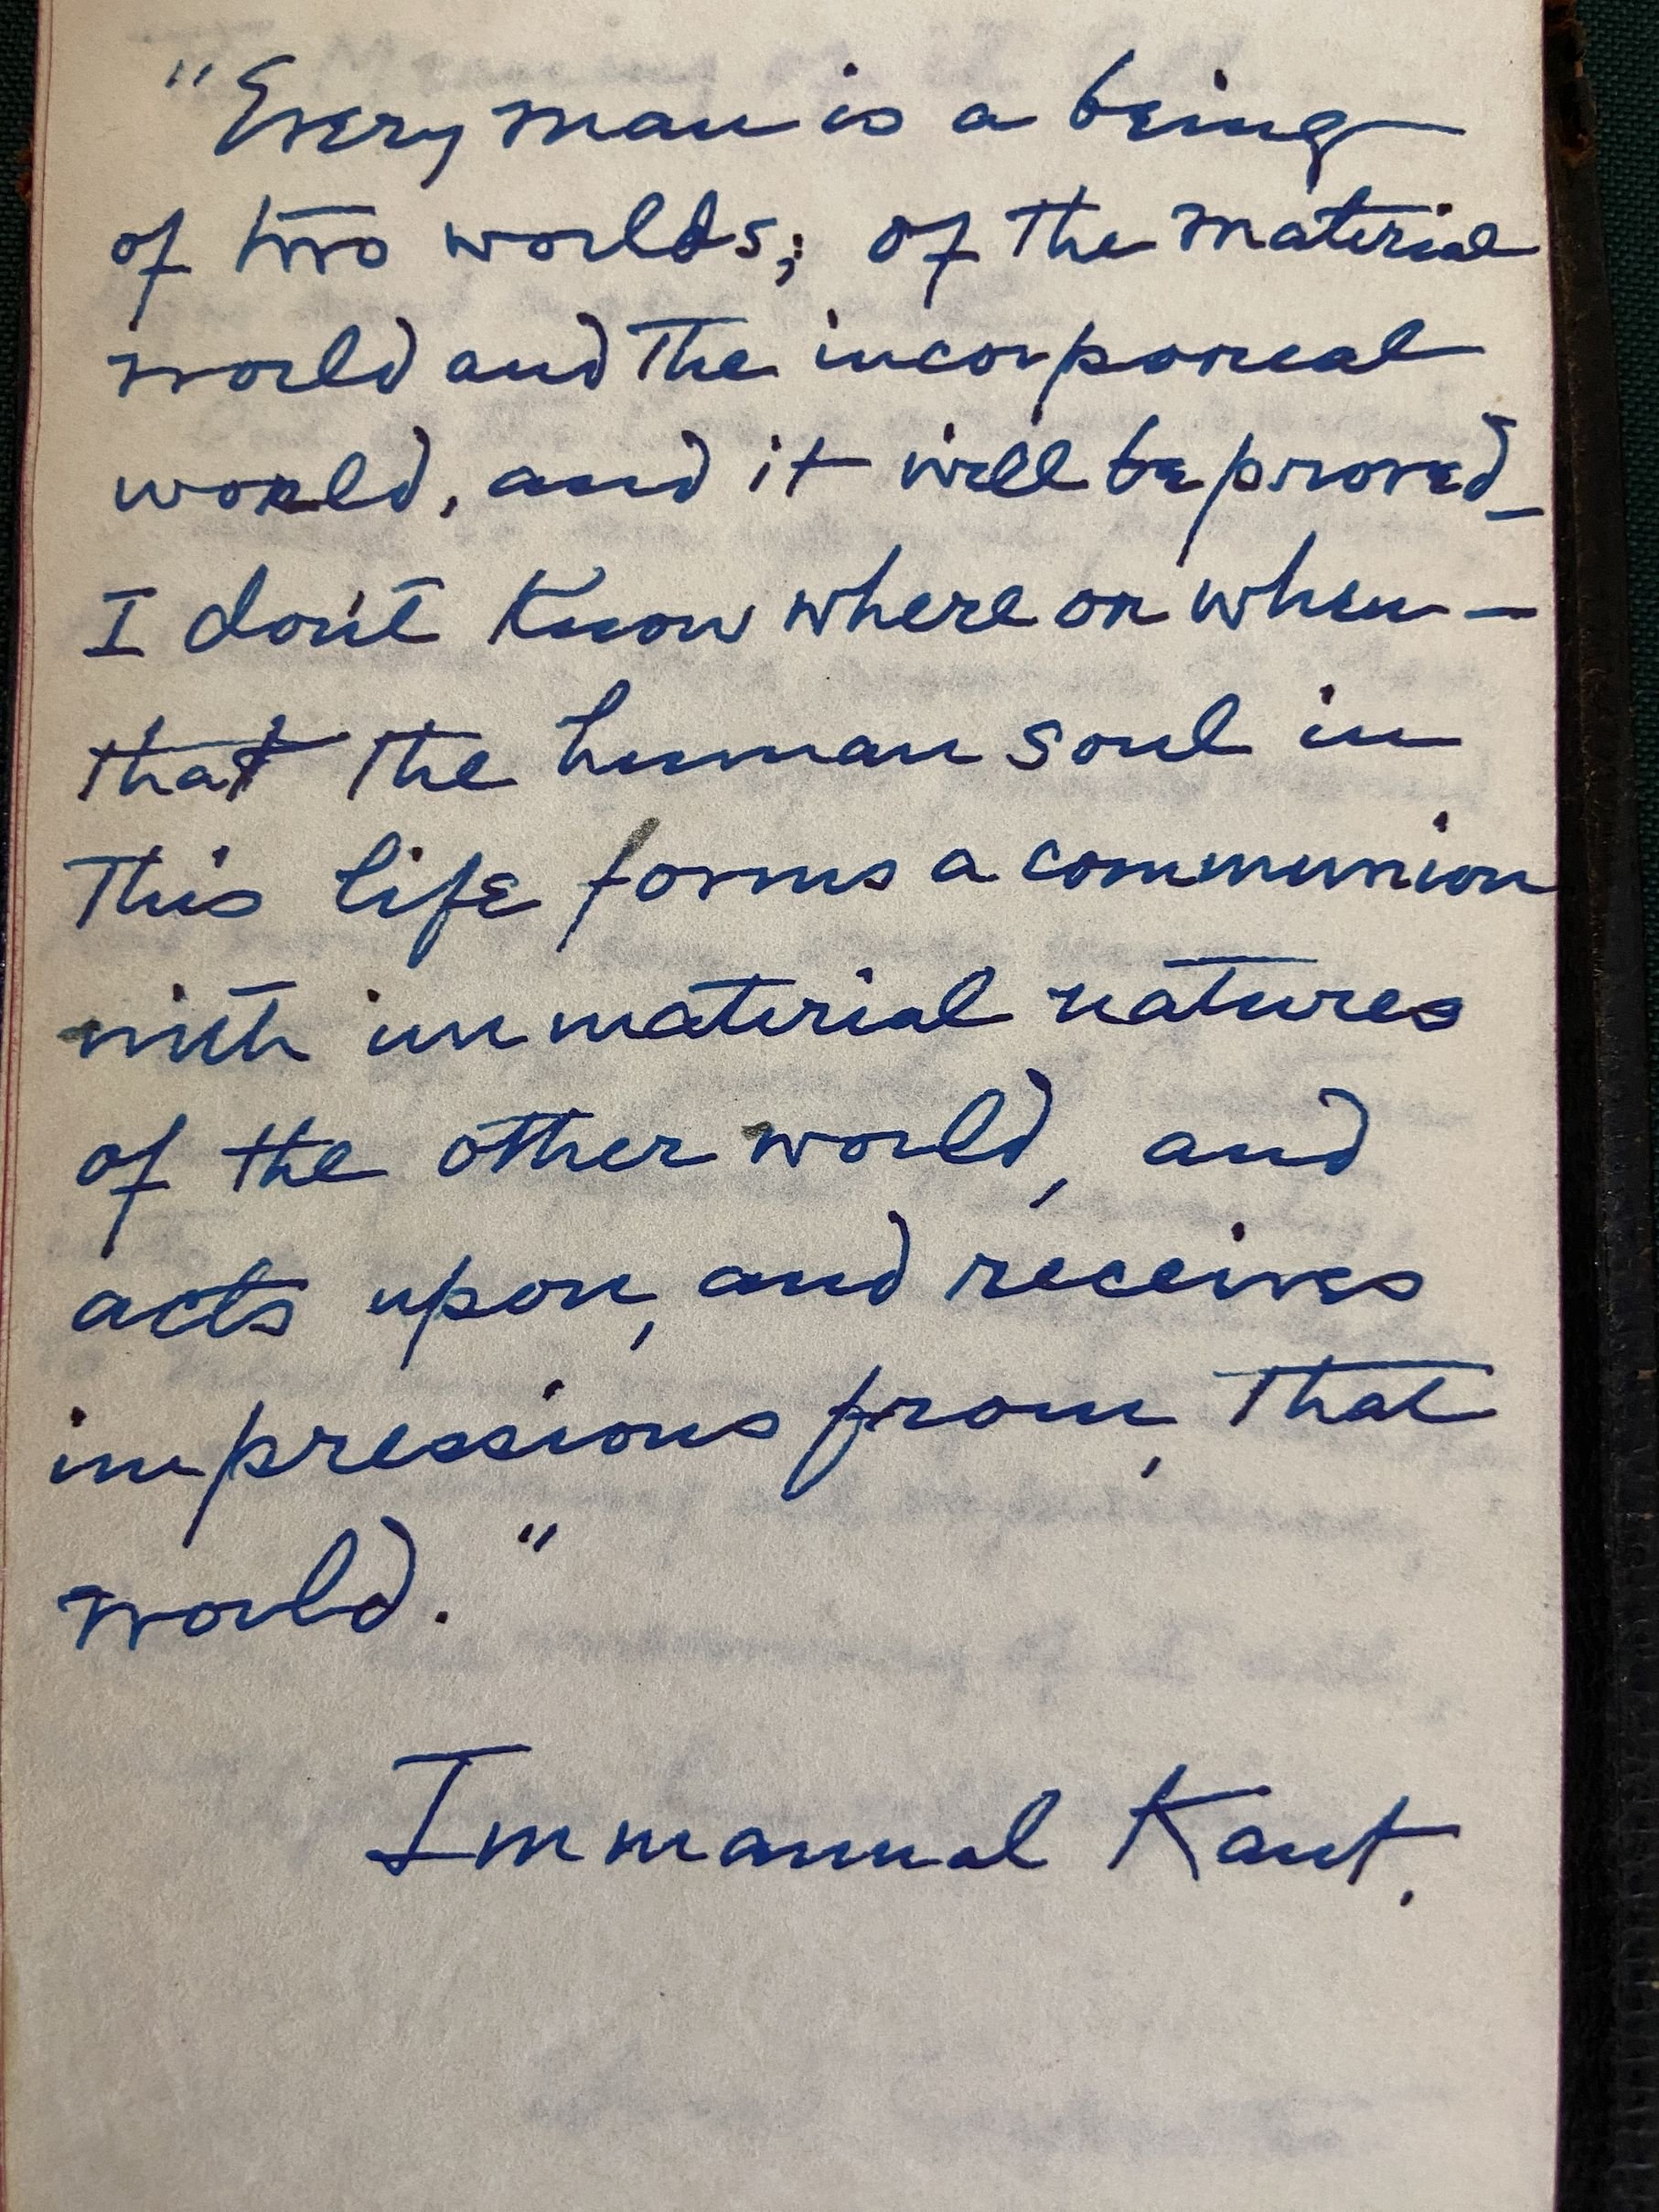 "Every man is a being
of two worlds; of the material
world and the incorporeal
world, and it will be proved_
I don't know where or when –
that the human soul in
This life forms a communion
with immaterial natures
of the other world, and
acts upon, and receives
impressions from, that
world."
Immanual Kant.